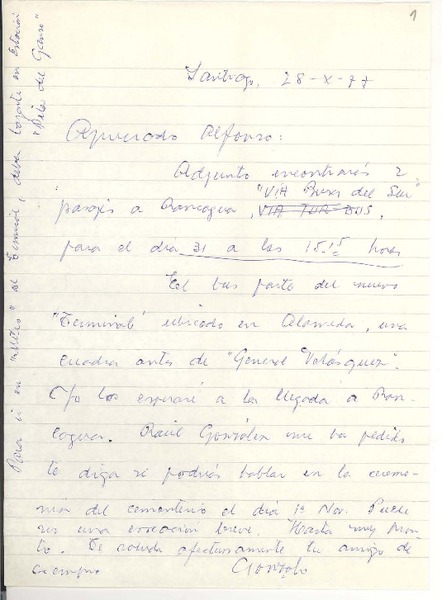 1
Santiago, 28-X-77
Apreciado Alfonso:
Adjunto encontrarás 2
"VIA Buses del Sur"
pasajes a Rancagua, VIA TUR-BUS,
para el día 31 a las 15.15 horas
El bus parte del nuevo
"Terminal" ubicado en Alameda, una
cuadra antes de "General Velásquez".
Yo los esperaré a la llegada a Ran-
cagua. Raúl González me ha pedido
te diga si podrías hablar en la ceremo-
nia del cementerio el día 1º Nov. Puede
ser una evocación breve. Hasta muy pron-
to. Te saluda afectuosamente tu amigo de
siempre Gonzalo
Para ir en "Metro" al Terminal, deben bajarse en Estación
"Pila del Ganso"